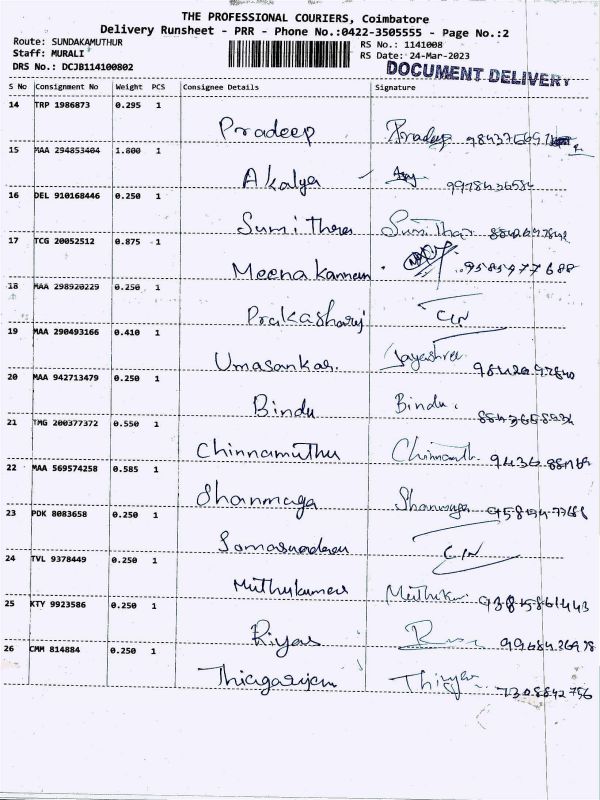 THE PROFESSIONAL COURIERS, Coimbatore
Delivery Runsheet - PRR - Phone No.:0422-3505555 - Page No.:2
Route: SUNDAKAMUTHUR
Staff: MURALI
DRS No.: DCJB114100802
RS No.: 1141008
RS Date: 24-Mar-2023
DOCUMENT DELIVERY
S No Consignment No Weight PCS Consignee Details Signature
14 TRP 1986873 0.295 1
Pradeep Pradeep
15 MAA 294853404 1.800 1
Akalya
16 DEL 910168446 0.250 1
Sumithra
17 TCG 20052512 0.875 1
Meena Kannan 9585977688
18 MAA 298920229 0.250 1
Prakasharaj
19 MAA 290493166 0.410 1
Umasankar. Jayashree
20 MAA 942713479 0.250 1
Bindu Bindu.
21 TMG 200377372 0.550 1
Chinnamuthu
22 MAA 569574258 0.585 1
Shanmuga
23 PDK 8083658 0.250 1
24 TVL 9378449 0.250 1
Muthukumar
25 KTY 9923586 0.250 1
Riyas
26 CMM 814884 0.250 1
Thiagarajan 7308842756